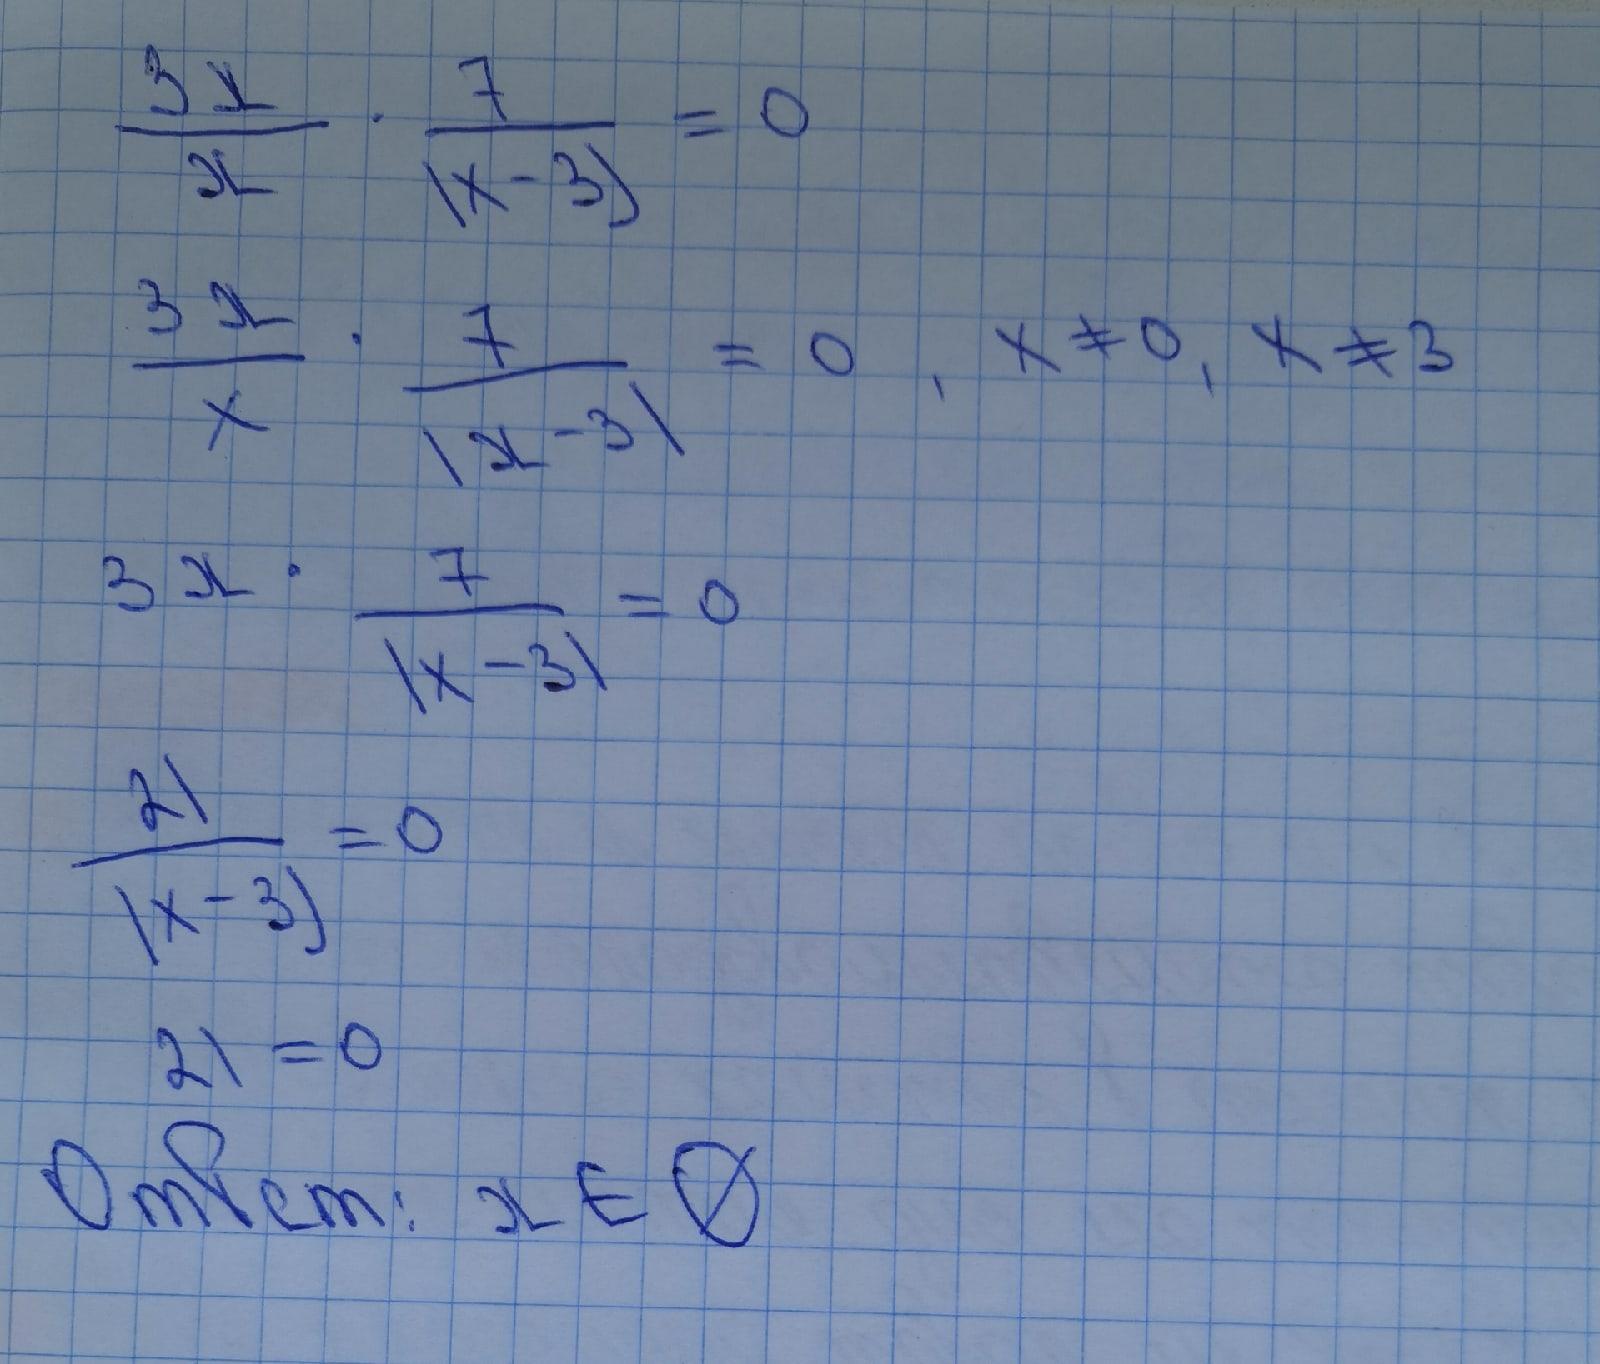 3x/x · 7/|x-3| = 0
3x/x · 7/|x-3| = 0, x≠0, x≠3
3x · 7/|x-3| = 0
21/|x-3| = 0
21 = 0
Ответ: x ∈ ∅